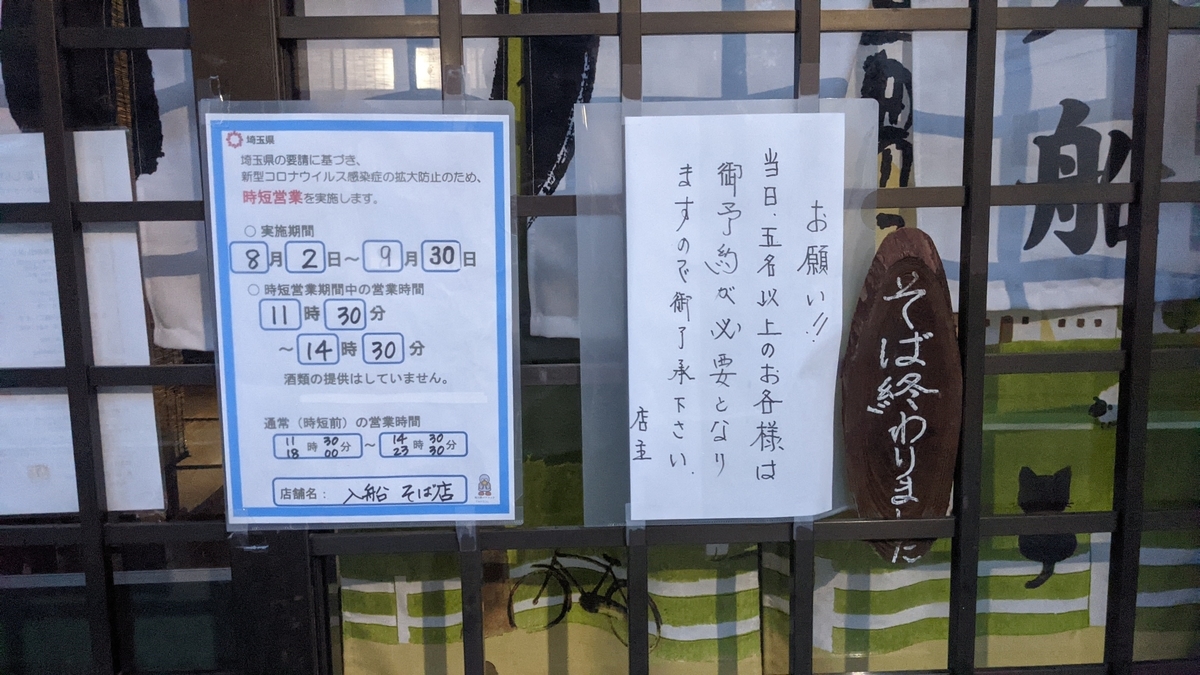 埼玉県
埼玉県の要請に基づき、
新型コロナウイルス感染症の拡大防止のため、
時短営業を実施します。
○ 実施期間
8月2日～9月30日
○ 時短営業期間中の営業時間
11時30分
～14時30分
酒類の提供はしていません。
通常（時短前）の営業時間
11時30分～14時30分
18時00分～23時30分
店舗名：入船 そば店
お願い!!
当日.五名以上のお客様は
御予約が必要となり
ますので御了承下さい.
店主
そば終わりました
船